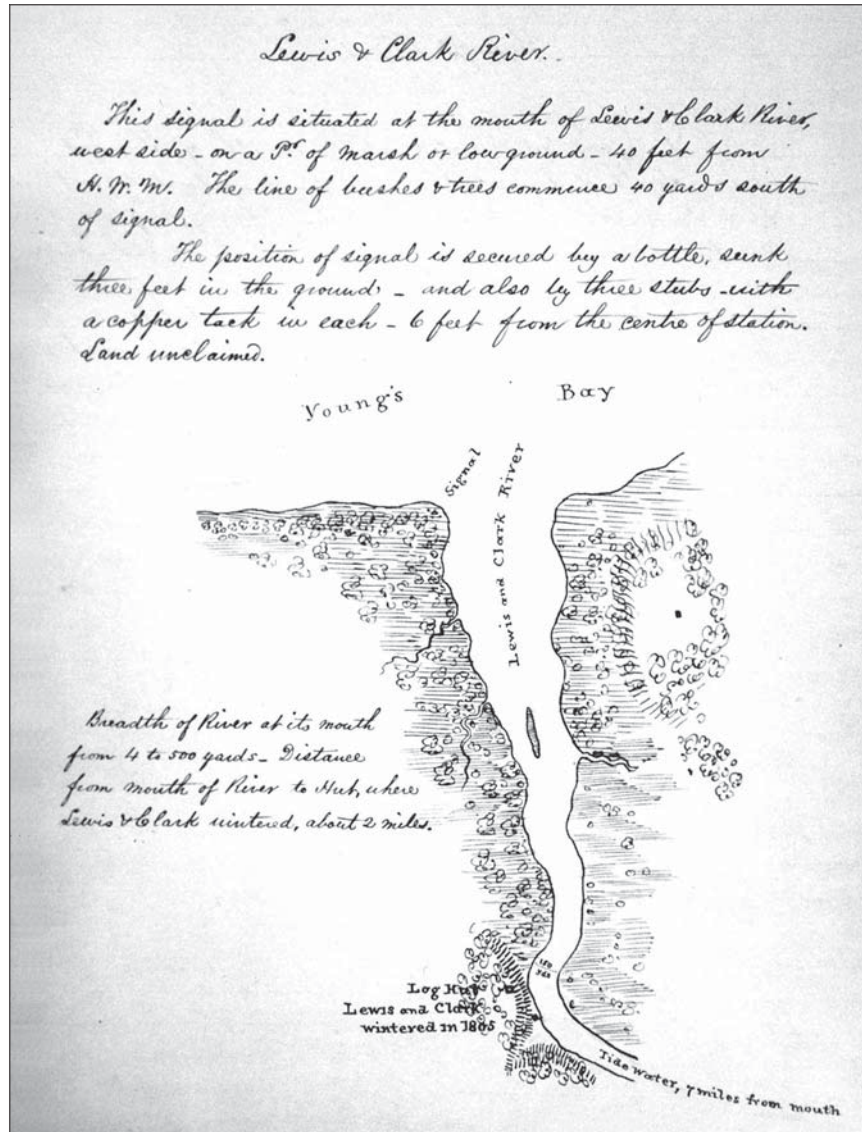 Lewis & Clark River.
This signal is situated at the mouth of Lewis & Clark River,
west side - on a Pt. of marsh or low ground - 40 feet from
H. W. M. The line of bushes & trees commence 40 yards south
of signal.
The position of signal is secured by a bottle, sunk
three feet in the ground - and also by three stubs - with
a copper tack in each - 6 feet from the centre of station.
Land unclaimed.
Young's Bay
Signal
Lewis and Clark River
Breadth of River at its mouth
from 4 to 500 yards - Distance
from mouth of River to Hut, where
Lewis & Clark wintered, about 2 miles.
150
yds
Log Hut
Lewis and Clark
wintered in 1805
Tide water, 7 miles from mouth